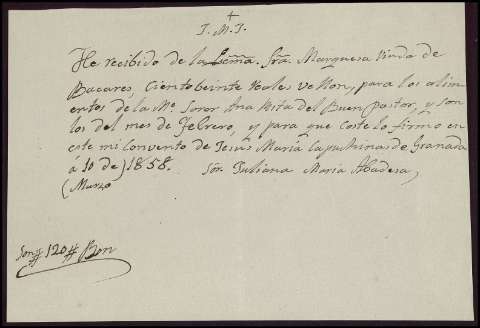 +
J. M. J.
He recibido de la Sra. Marquesa Viuda de
Bacares, Ciento beinte reales vellon, para los alim-
entos de la Me. Soror Ana Rita del Buen Pastor, y son
los del mes de Febrero, y para que coste lo firmo en
este mi Convento de Jesus María Capuchinas de Granada
á 10 de) 1858. Sor. Juliana María Abadesa,
(Marzo
Son # 120 # Rvon